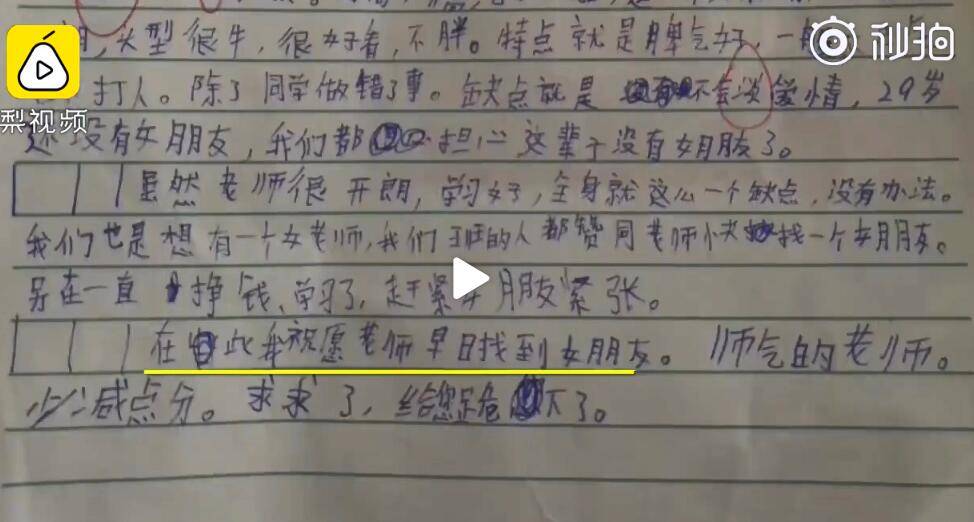 头型很牛，很好看，不胖。特点就是脾气好，一般
秒拍
打人。除了同学做错了事。缺点就是不会谈爱情，29岁
梨视频
还没有女朋友，我们都担心这辈子没有女朋友了。
虽然老师很开朗，学习好，全身就这么一个缺点，没有办法。
我们也是想有一个女老师，我们班的人都赞同老师快找一个女朋友。
别在一直挣钱、学习了，赶紧女朋友紧张。
在此我祝愿老师早日找到女朋友。师气的老师。
少减点分。求求了，给您跪下了。